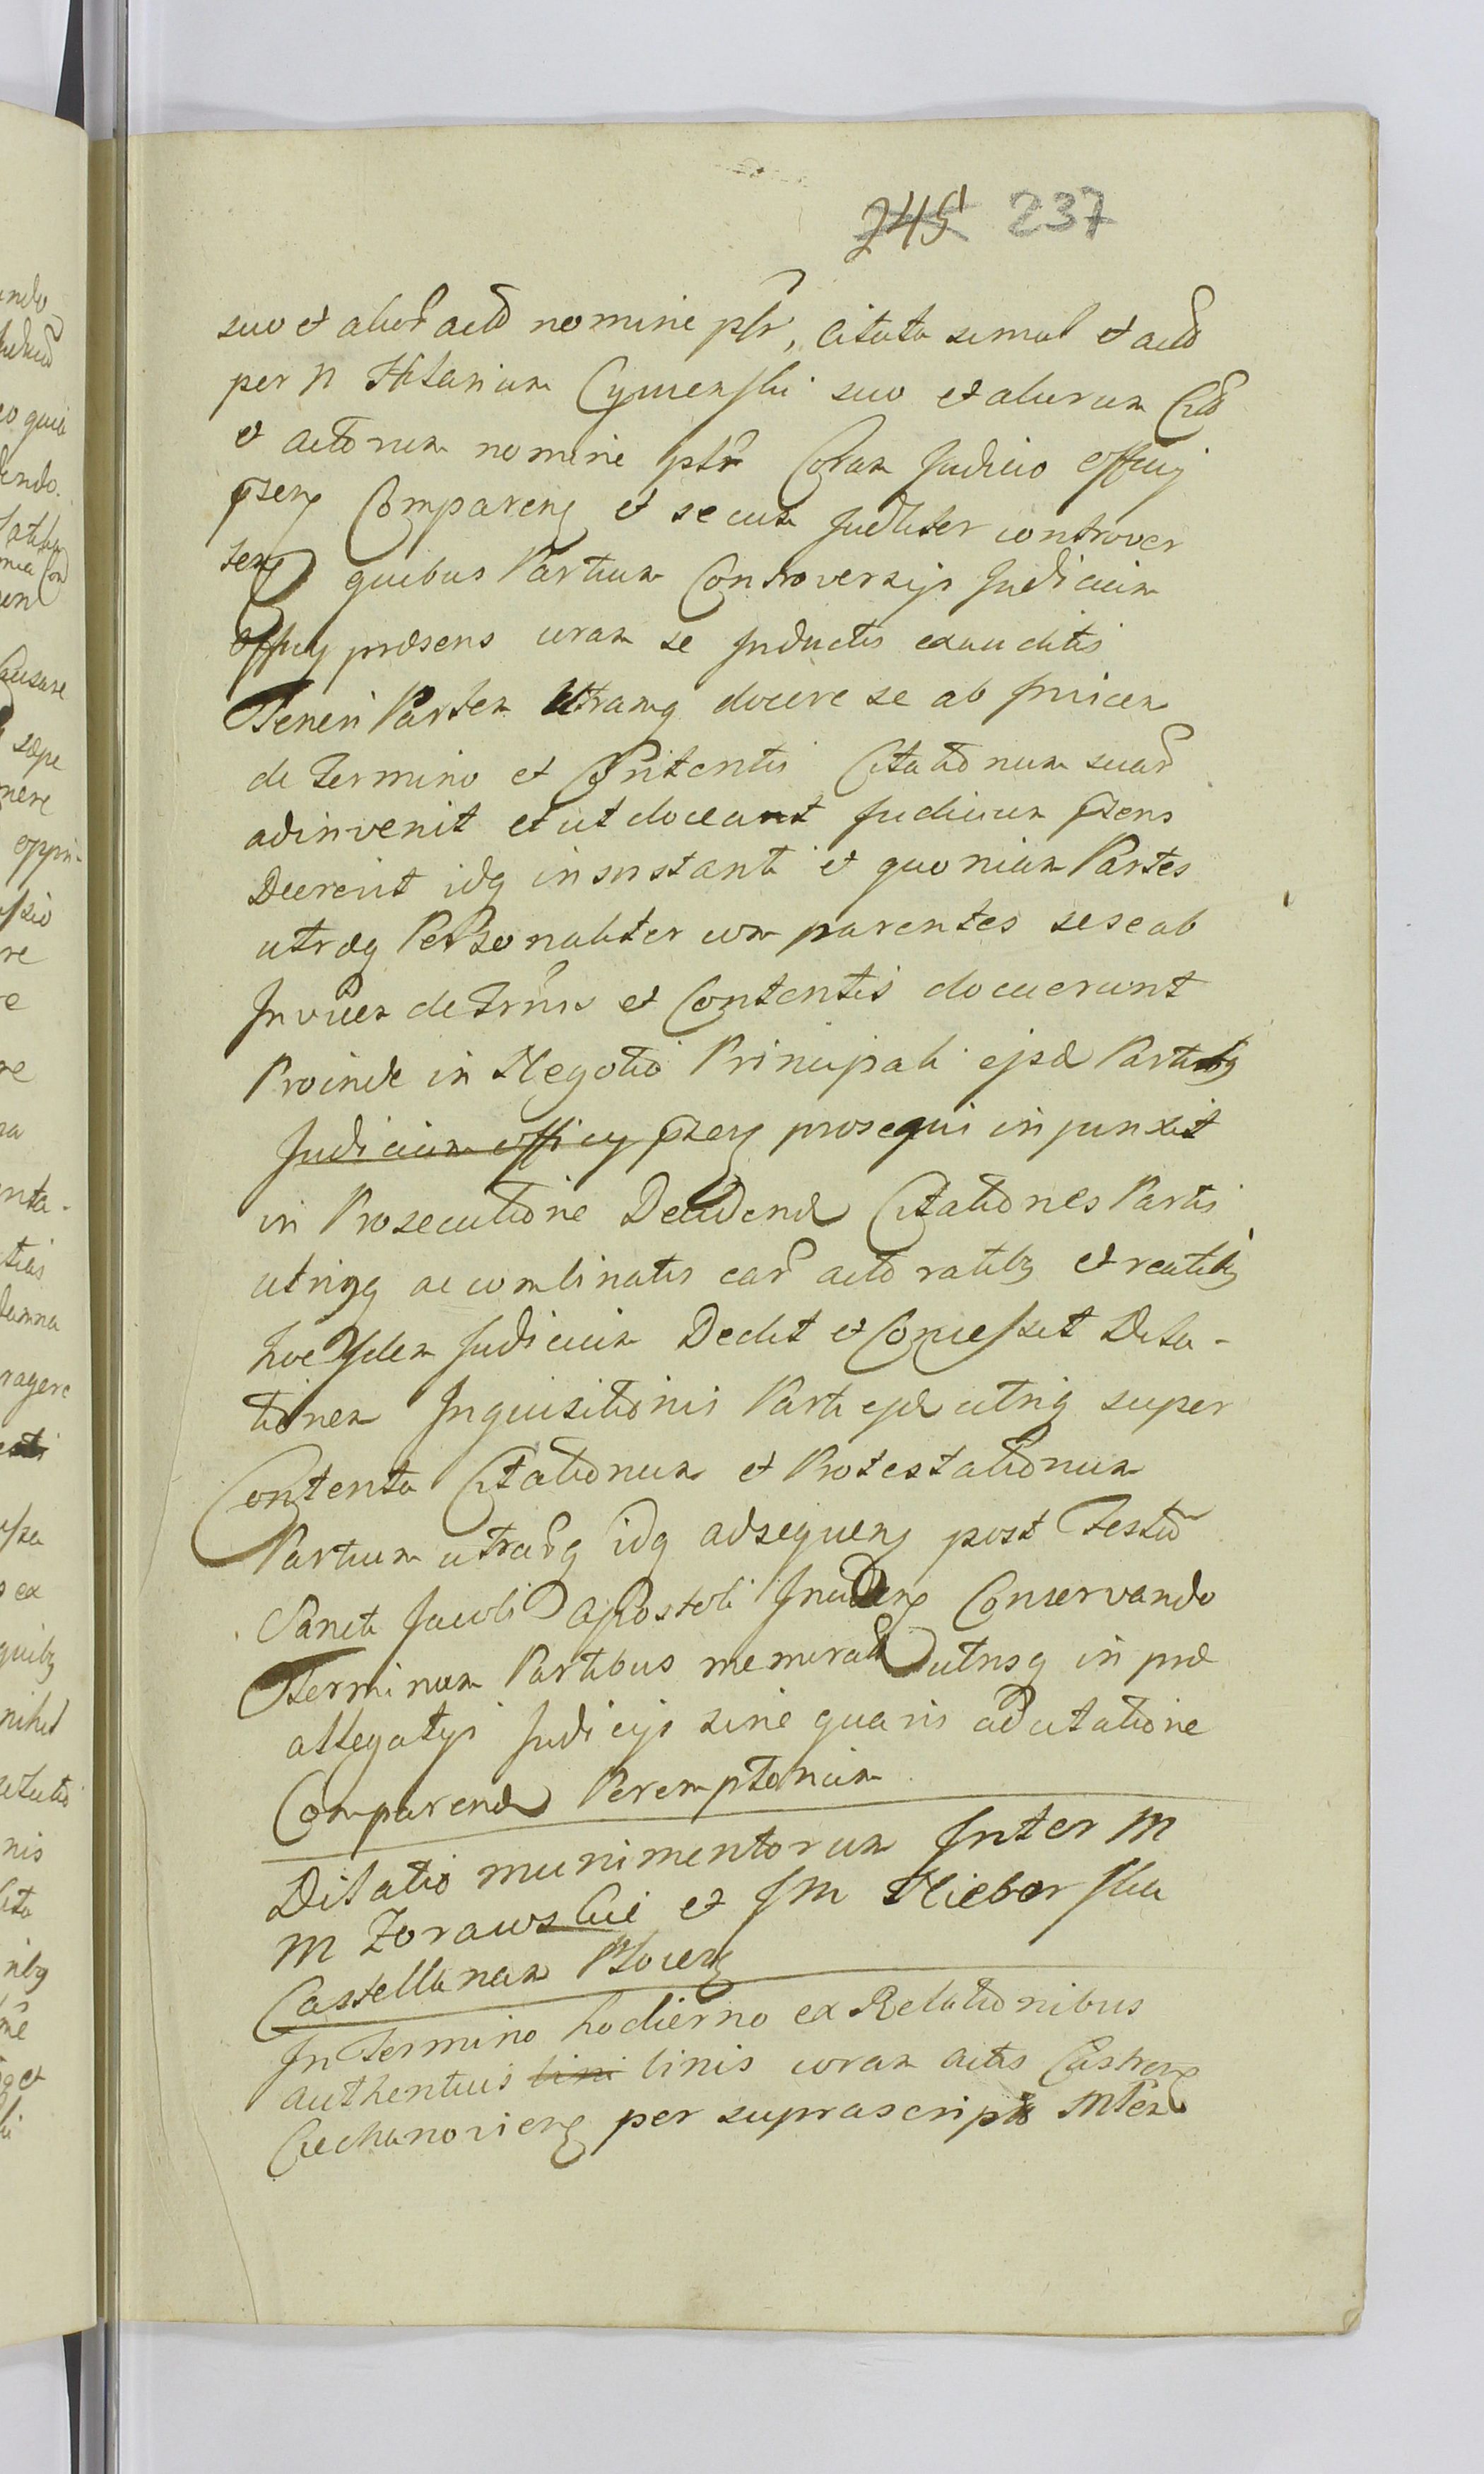 245 237
suo et alior acto nomine ptr, citata simul et acto
per N Hilarium Cymenski suo et aliorum Cito
et actorum nomine ptr Coram Judicio officij
pseng Compareng et secum Judliter controver
seng quibus Partium Controversijs Judicium
officij præsens coram se Inductis exauditis
Teneri Partem Utramq docere se ab Invicem
de Termino et Contentis Citationum suar
adinvenit et ut doceant Judicium psens
Decrevit idq in instanti et quoniam Partes
utræq Personaliter com parentes sese ab
Invicem de Trnis et Contentis docuerunt
Proinde in Negotio Principali ejsd Partibq
Judicium officij pseng prosequi injunxit
in Prosecutione Decidend Citationes Partis
utriusq ac combinatis ear actoratibq et reatibq
hoc Idem Judicium Dedit et Concessit Dila-
tionem Inquisitionis Parti ejsd utriq super
Contenta Citationum et Protestationum
Partium utrarq idq adsequeng post Festu
Sancti Jacobi Apostoli Incideng Conservando
Terminum Partibus memorat utrisq in præ
allegatys Judicijs sine quavis adcitatione
Comparend Peremptorium
Dilatio munimentorum Inter M
M Zorawskie et IM Nieborska
Castellanam Plocens
In Termino hodierno ex Relationibus
authenticis bini binis coram actis Castreng
Ciechanovieng per suprascript Mtem